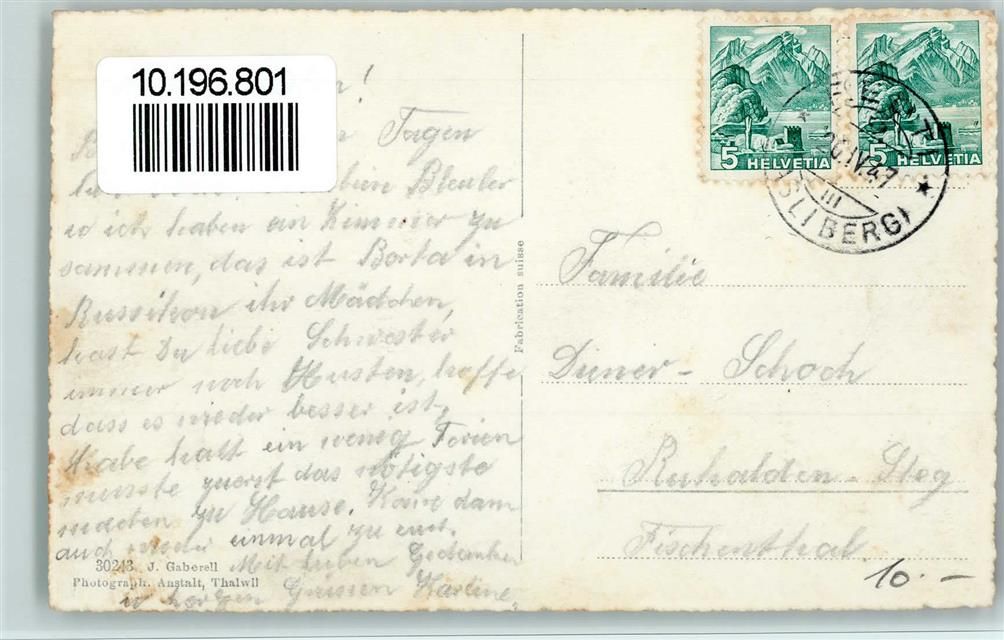 10.196.801
Tagen
Bleuler
ich haben ein Zimmer zu
sammen, das ist Borta in
Russikon ihr Mädchen,
hast Du liebe Schwester
immer noch Husten, hoffe
dass es wieder besser ist,
Habe halt ein wenig Ferien
musste zuerst das nötigste
machen zu Hause. dann
auch wieder einmal zu euch.
Mit lieben Gedenken
u herzen Grüssen Karline,
30243 J. Gaberell
Photograph. Anstalt, Thalwil
Fabrication suisse
5 HELVETIA
5 HELVETIA
20.IV.47
III
Familie
Diener - Schoch
Ruhalden - Steg
Fischenthal
10.-